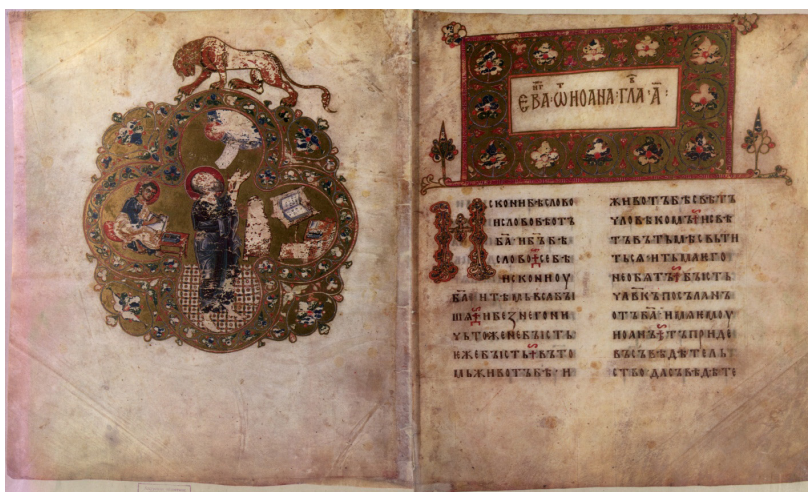 ЄВАГ · ѠТ ИОАНА · ГЛАВ · А҃ :
ИСКОНИ БѢ СЛОВО
И СЛОВО БѢ ОТЪ
Б҃А · И Б҃Ъ БѢ
СЛОВО · СЕ БѢ
ИСКОНИ ОУ
Б҃А · И ТѢМЬ ВСѦ БЫ
ШѦ · И БЕЗ НЕГО НИ
ЧЬТОЖЕ НЕ БЫСТЬ
ѤЖЕ БЫСТЬ · ВЪ ТО
МЬ ЖИВОТЪ БѢ · И
ЖИВОТЪ БѢ СВѢТЪ
ЧЛОВѢКОМЪ · И СВѢ
ТЪ ВЪ ТЬМѢ СВЬТИ
ТЬСѦ · И ТЬМА ѤГО
НЕ ОБѦТЪ · БЫСТЪ
ЧЛ҃ВКЪ ПОСЪЛАНЪ
ОТЪ Б҃А · ИМѦ ѤМОУ
ИОАНЪ · ТЪ ПРИДЕ
ВЪ СЪВѢДѢТЕЛЬ
СТВО · ДА СЪВѢДѢТЕ